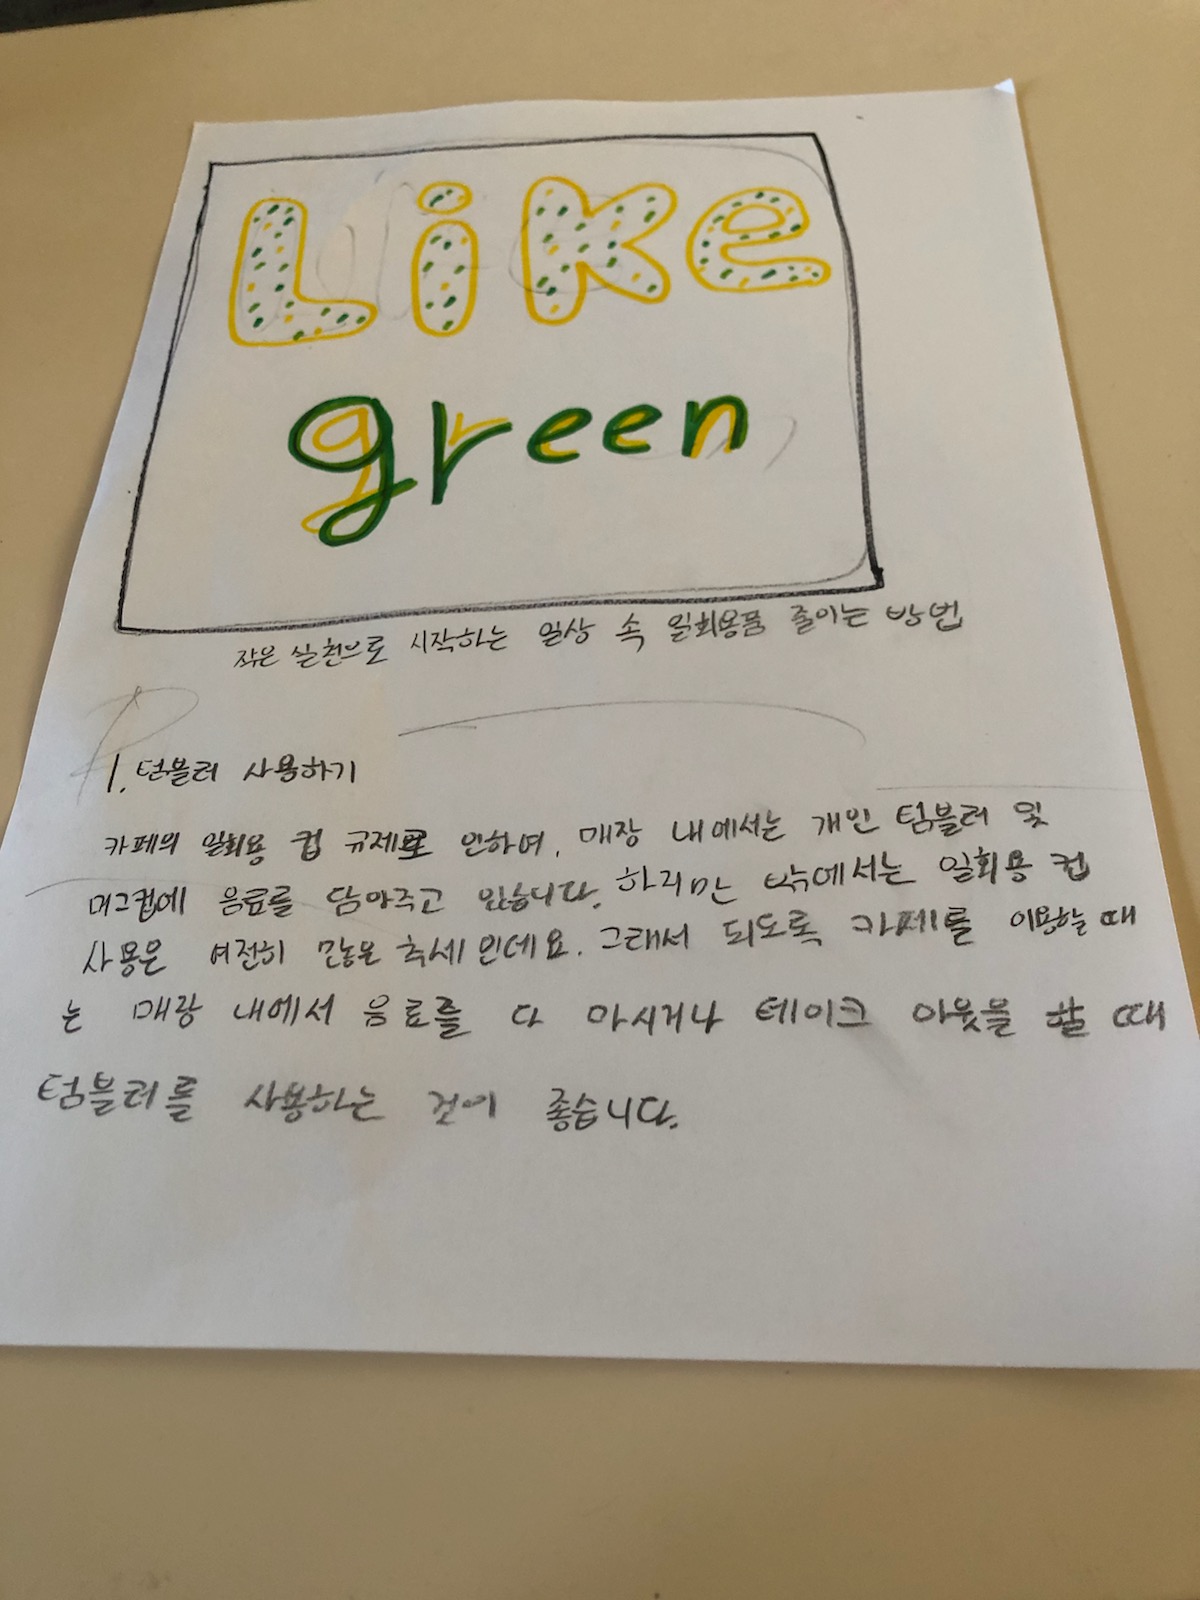 Like
green
작은 실천으로 시작하는 일상 속 일회용품 줄이는 방법
1. 텀블러 사용하기
카페의 일회용 컵 규제로 인하여, 매장 내에서는 개인 텀블러 및
머그컵에 음료를 담아주고 있습니다. 하지만 밖에서는 일회용 컵
사용은 여전히 많은 추세인데요. 그래서 되도록 카페를 이용할 때
는 매장 내에서 음료를 다 마시거나 테이크 아웃을 할 때
텀블러를 사용하는 것이 좋습니다.